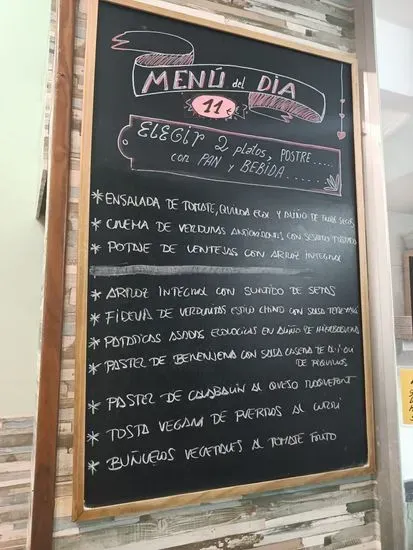 MENÚ del DÍA
11 €
ELEGIR 2 platos, POSTRE.....
con PAN y BEBIDA.......
* ENSALADA DE TOMATE, QUINOA ECO Y ALIÑO DE FRUTOS SECOS
* CREMA DE VERDURAS ANTIOXIDANTES CON SESAMO TOSTADO
* POTAJE DE LENTEJAS CON ARROZ INTEGRAL
* ARROZ INTEGRAL CON SURTIDO DE SETAS
* FIDEUA DE VERDURITAS ESTILO CHINO CON SALSA TERIYAKI
* PATATICAS ASADAS ECOLOGICAS EN ALIÑO DE HIERBABUENA
* PASTEL DE BERENJENA CON SALSA CASERA DE
DE PIQUILLOS
* PASTEL DE CALABACIN AL QUESO ROQUEFORT
* TOSTA VEGANA DE PUERROS AL CURRI
* BUÑUELOS VEGETALES AL TOMATE FRITO